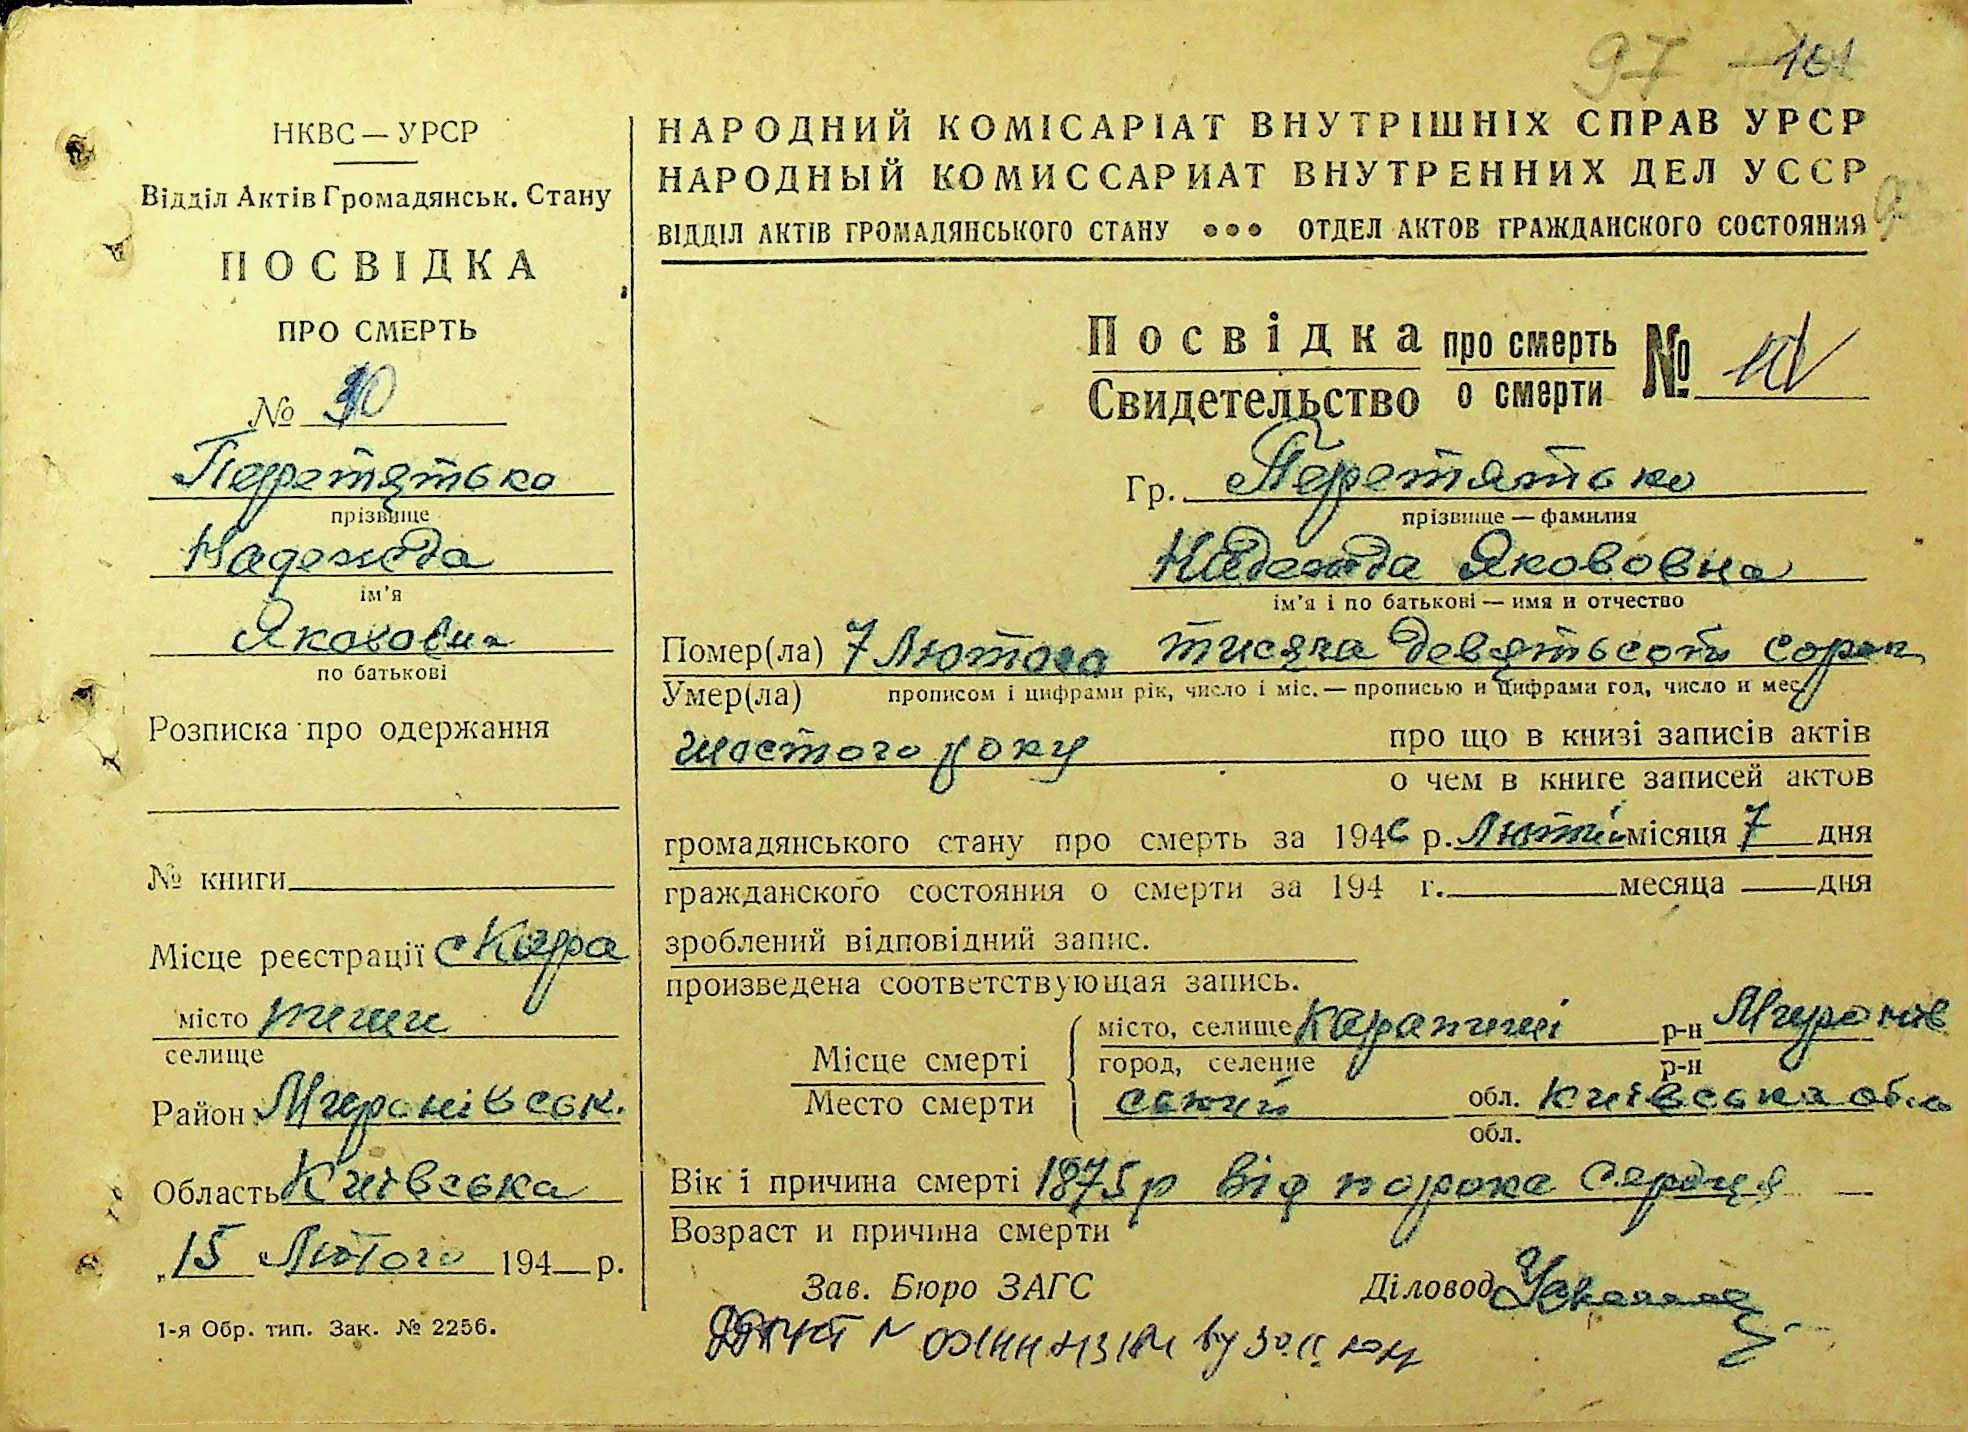 97 161
НКВС — УРСР
Відділ Актів Громадянськ. Стану
ПОСВІДКА
ПРО СМЕРТЬ
№ 90
Перетятько
прізвище
Надежда
ім'я
Якововна
по батькові
Розписка про одержання
№ книги
Місце реєстрації с Кара
місто пиши
селище
Район Миронівськ.
Область Київська
"15 Лютого 194 р.
1-я Обр. тип. Зак. № 2256.
НАРОДНИЙ КОМІСАРІАТ ВНУТРІШНІХ СПРАВ УРСР
НАРОДНЫЙ КОМИССАРИАТ ВНУТРЕННИХ ДЕЛ УССР
ВІДДІЛ АКТІВ ГРОМАДЯНСЬКОГО СТАНУ ••• ОТДЕЛ АКТОВ ГРАЖДАНСКОГО СОСТОЯНИЯ
Посвідка про смерть №
Свидетельство о смерти
Гр. Перетятько
прізвище — фамилия
Надежда Якововна
ім'я і по батькові — имя и отчество
Помер(ла) 7 Лютого тисяча девятьсот сорок
Умер(ла) прописом і цифрами рік, число і міс. — прописью и цифрами год, число и мес.
шостого року про що в книзі записів актів
о чем в книге записей актов
громадянського стану про смерть за 1946 р. Лютий місяця 7 дня
гражданского состояния о смерти за 194 г. месяца дня
зроблений відповідний запис.
произведена соответствующая запись.
Місце смерті місто, селище Карапиші р-н Миронів
Место смерти город, селение р-н
ський обл. Київська обл
обл.
Вік і причина смерті 1875 р від порока сердця
Возраст и причина смерти
Зав. Бюро ЗАГС Діловод